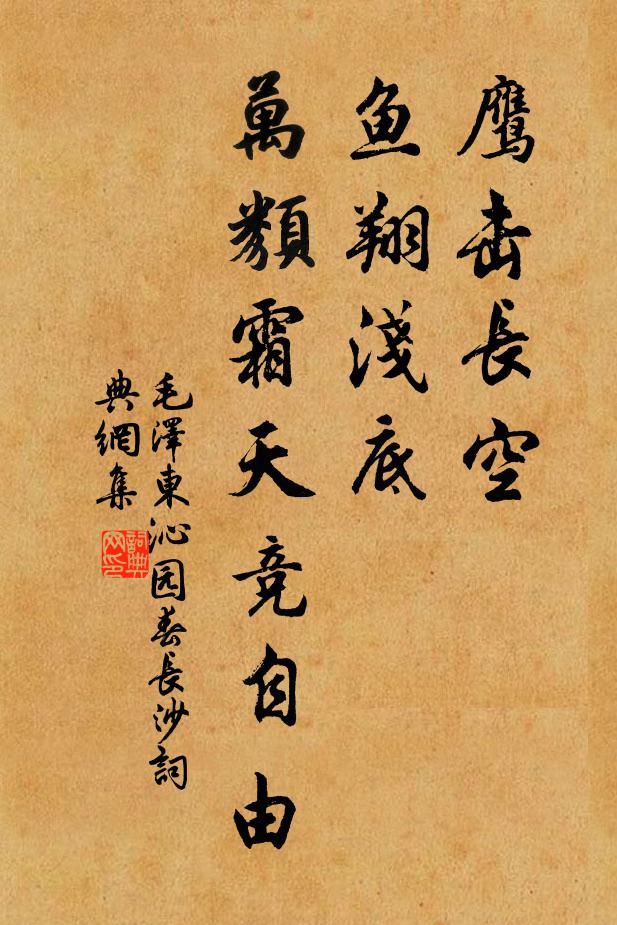 鹰击長空
鱼翔淺底
萬類霜天竞自由
毛澤東沁园春長沙詞
典網集
詞典网印